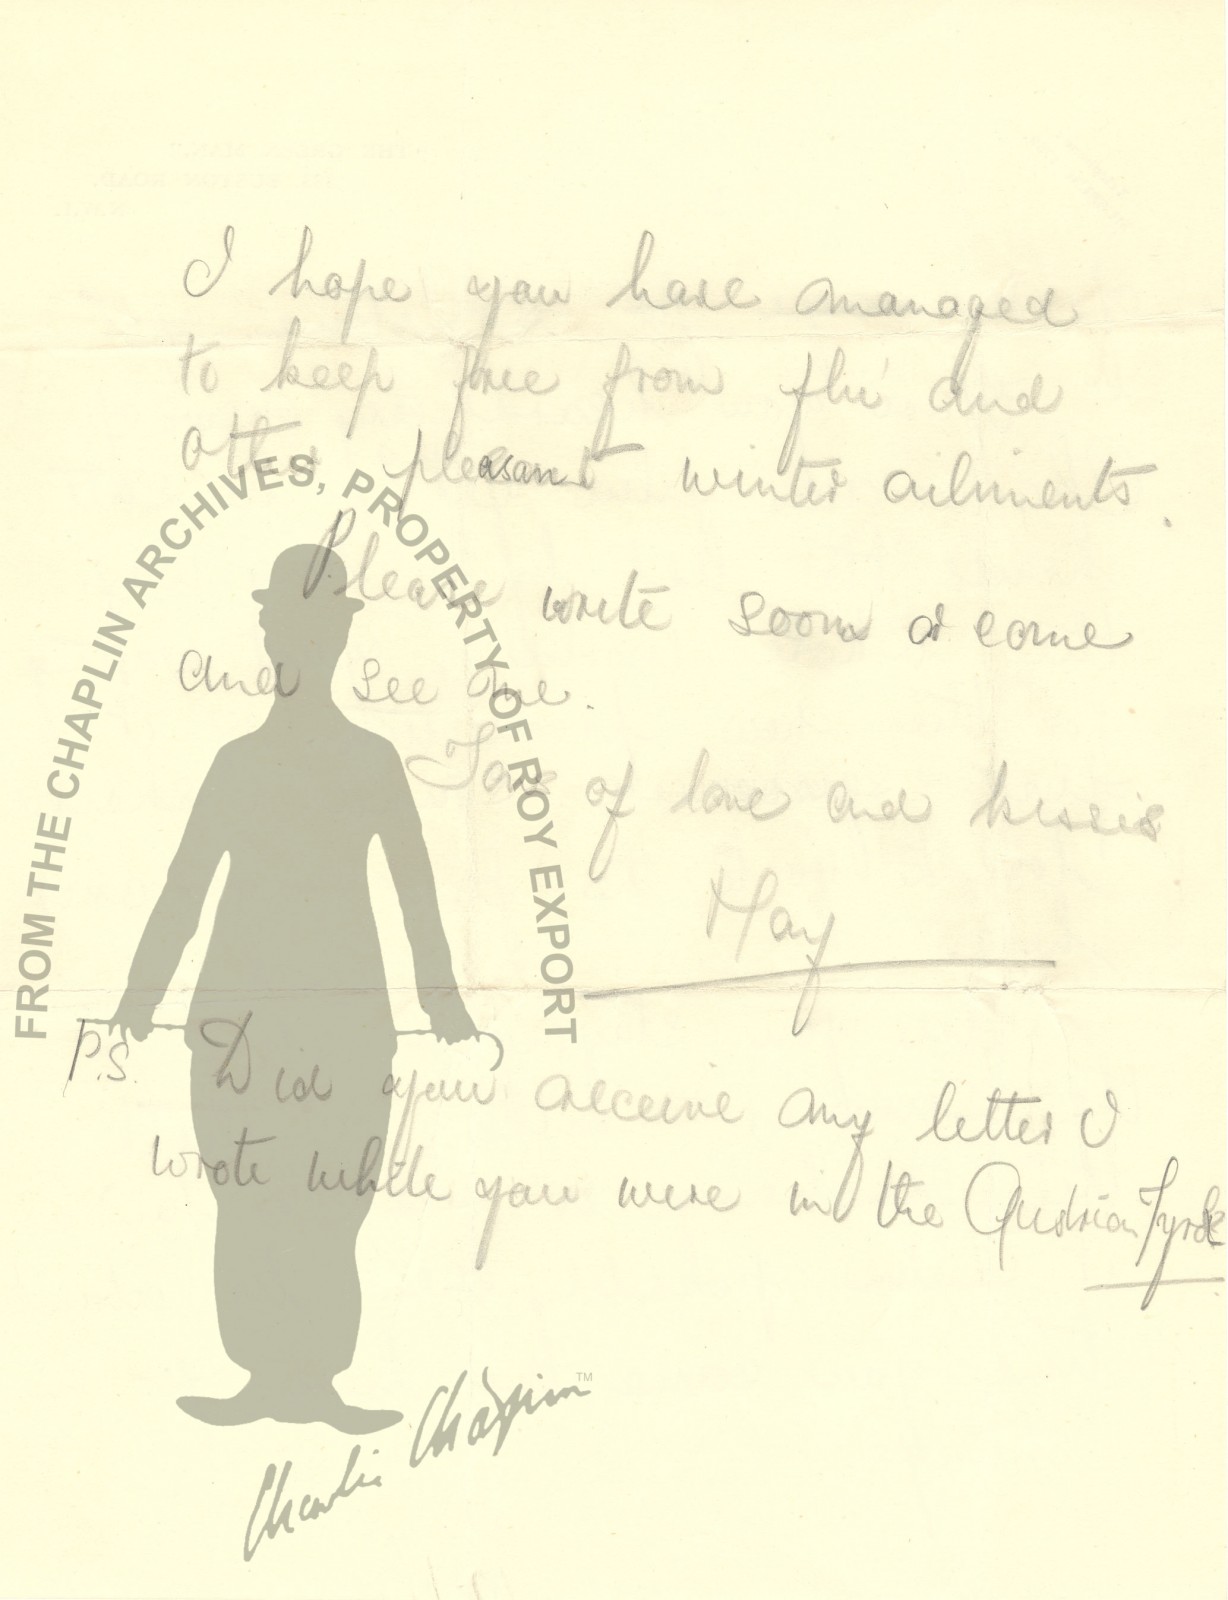 I hope you have managed
to keep free from flu' and
other pleasant winter ailments.
Please write soon or come
and see me.
Tons of love and kisses
May
P.S. Did you receive any letter I
wrote while you were in the Austrian Tyrol
FROM THE CHAPLIN ARCHIVES, PROPERTY OF ROY EXPORT
Charlie Chaplin TM